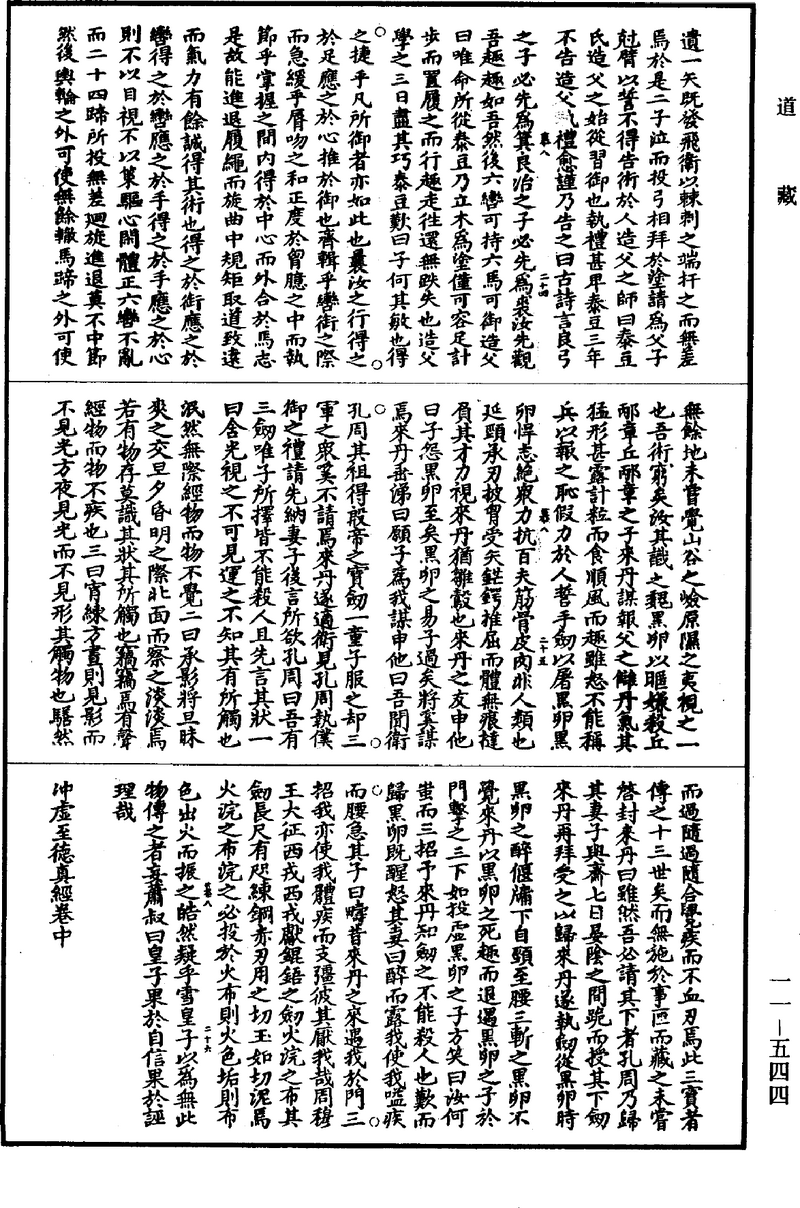 道藏
遺一矢既發飛衛以棘刺之端扞之而無差
焉於是二子泣而投弓相拜於塗請爲父子
尅臂以誓不得告術於人造父之師曰泰豆
氏造父之始從習御也執禮甚卑泰豆三年
不告造父執禮愈謹乃告之曰古詩言良弓
之子必先爲箕良冶之子必先爲裘汝先觀
吾趣趣如吾然後六轡可持六馬可御造父
曰唯命所從泰豆乃立木爲塗僅可容足計
步而置履之而行趣走往還無跌失也造父
學之三日盡其巧泰豆歎曰子何其敏也得
之捷乎凡所御者亦如此也曩汝之行得之
於足應之於心推於御也齊輯乎轡銜之際
而急緩乎脣吻之和正度於胷臆之中而執
節乎掌握之間內得於中心而外合於馬志
是故能進退履繩而旋曲中規矩取道致遠
而氣力有餘誠得其術也得之於銜應之於
轡得之於轡應之於手得之於手應之於心
則不以目視不以策驅心閑體正六轡不亂
而二十四蹄所投無差迴旋進退莫不中節
然後輿輪之外可使無餘轍馬蹄之外可使
二十四
無餘地未嘗覺山谷之嶮原隰之夷視之一
也吾術窮矣汝其識之魏黑卵以暱嫌殺丘
邴章丘邴章之子來丹謀報父之讎丹氣甚
猛形甚露計粒而食順風而趣雖怒不能稱
兵以報之恥假力於人誓手劒以屠黑卵黑
卵悍志絕衆力抗百夫筋骨皮肉非人類也
延頸承刃披胷受矢鋩鍔摧屈而體無痕撻
負其才力視來丹猶雛鷇也來丹之友申他
曰子怨黑卵至矣黑卵之易子過矣將奚謀
焉來丹垂涕曰願子爲我謀申他曰吾聞衛
孔周其祖得殷帝之寶劒一童子服之却三
軍之衆奚不請焉來丹遂適衛見孔周執僕
御之禮請先納妻子後言所欲孔周曰吾有
三劒唯子所擇皆不能殺人且先言其狀一
曰含光視之不可見運之不知其有所觸也
泯然無際經物而物不覺二曰承影將旦昧
爽之交旦夕昏明之際北面而察之淡淡焉
若有物存莫識其狀其所觸也竊竊焉有聲
經物而物不疾也三曰宵練方晝則見影而
不見光方夜見光而不見形其觸物也騞然
二十五
而過隨過隨合覺疾而不血刃焉此三寶者
傳之十三世矣而無施於事匣而藏之未嘗
啓封來丹曰雖然吾必請其下者孔周乃歸
其妻子與齋七日晏陰之間跪而授其下劒
來丹再拜受之以歸來丹遂執劒從黑卵時
黑卵之醉偃牖下自頸至腰三斬之黑卵不
覺來丹以黑卵之死趣而退遇黑卵之子於
門擊之三下如投虛黑卵之子方笑曰汝何
蚩而三招予來丹知劒之不能殺人也歎而
歸黑卵既醒怒其妻曰醉而露我使我嗌疾
而腰急其子曰疇昔來丹之來遇我於門三
招我亦使我體疾而支彊彼其厭我哉周穆
王大征西戎西戎獻錕鋙之劒火浣之布其
劒長尺有咫練鋼赤刃用之切玉如切泥焉
火浣之布浣之必投於火布則火色垢則布
色出火而振之皓然疑乎雪皇子以爲無此
物傳之者妄蕭叔曰皇子果於自信果於誣
理哉
二十六
冲虛至德真經卷中
一一—五四四